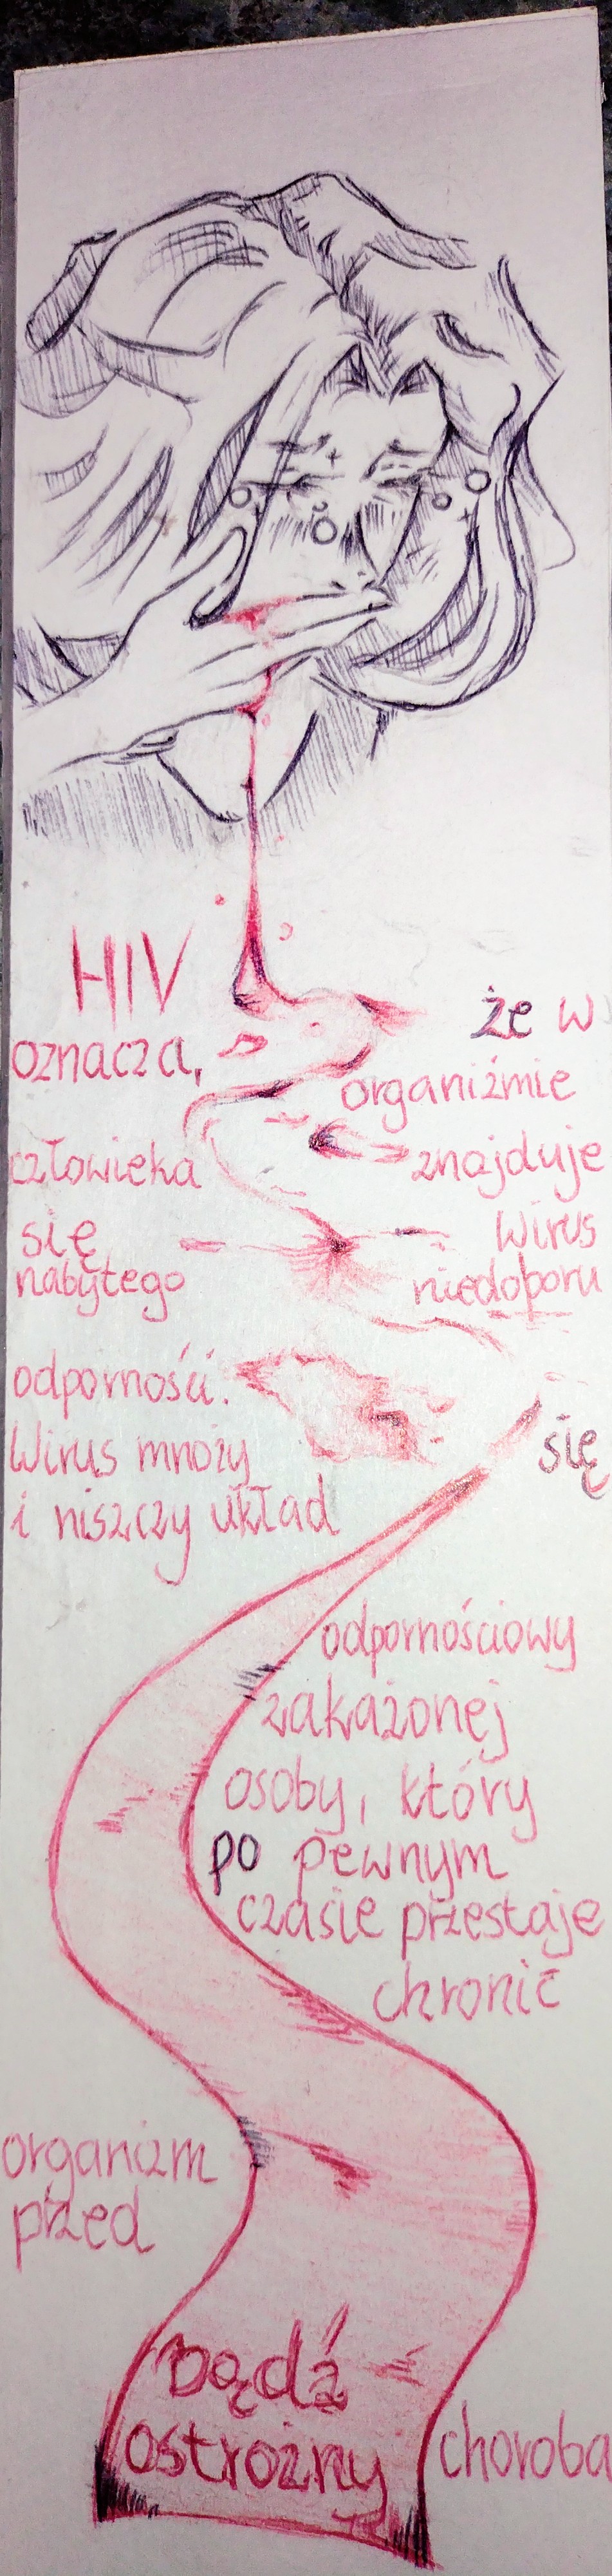 HIV
oznacza, że w
organiźmie
człowieka znajduje
się wirus
nabytego niedoporu
odporności.
Wirus mnoży się
i niszczy układ
odpornościowy
zakażonej
osoby, który
po pewnym
czasie przestaje
chronić
organizm
przed
choroba
bądź
ostrożny